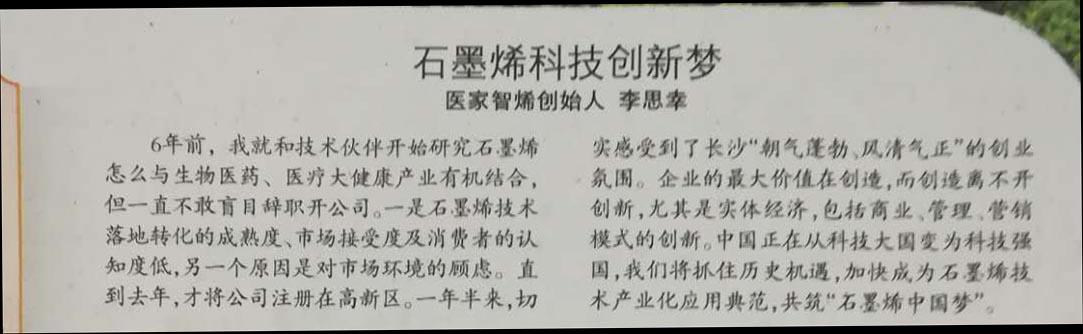 石墨烯科技创新梦
医家智烯创始人 李思幸
6年前，我就和技术伙伴开始研究石墨烯
怎么与生物医药、医疗大健康产业有机结合，
但一直不敢盲目辞职开公司。一是石墨烯技术
落地转化的成熟度、市场接受度及消费者的认
知度低，另一个原因是对市场环境的顾虑。直
到去年，才将公司注册在高新区。一年半来，切
实感受到了长沙“朝气蓬勃、风清气正”的创业
氛围。企业的最大价值在创造，而创造离不开
创新，尤其是实体经济，包括商业、管理、营销
模式的创新。中国正在从科技大国变为科技强
国，我们将抓住历史机遇，加快成为石墨烯技
术产业化应用典范，共筑“石墨烯中国梦”。